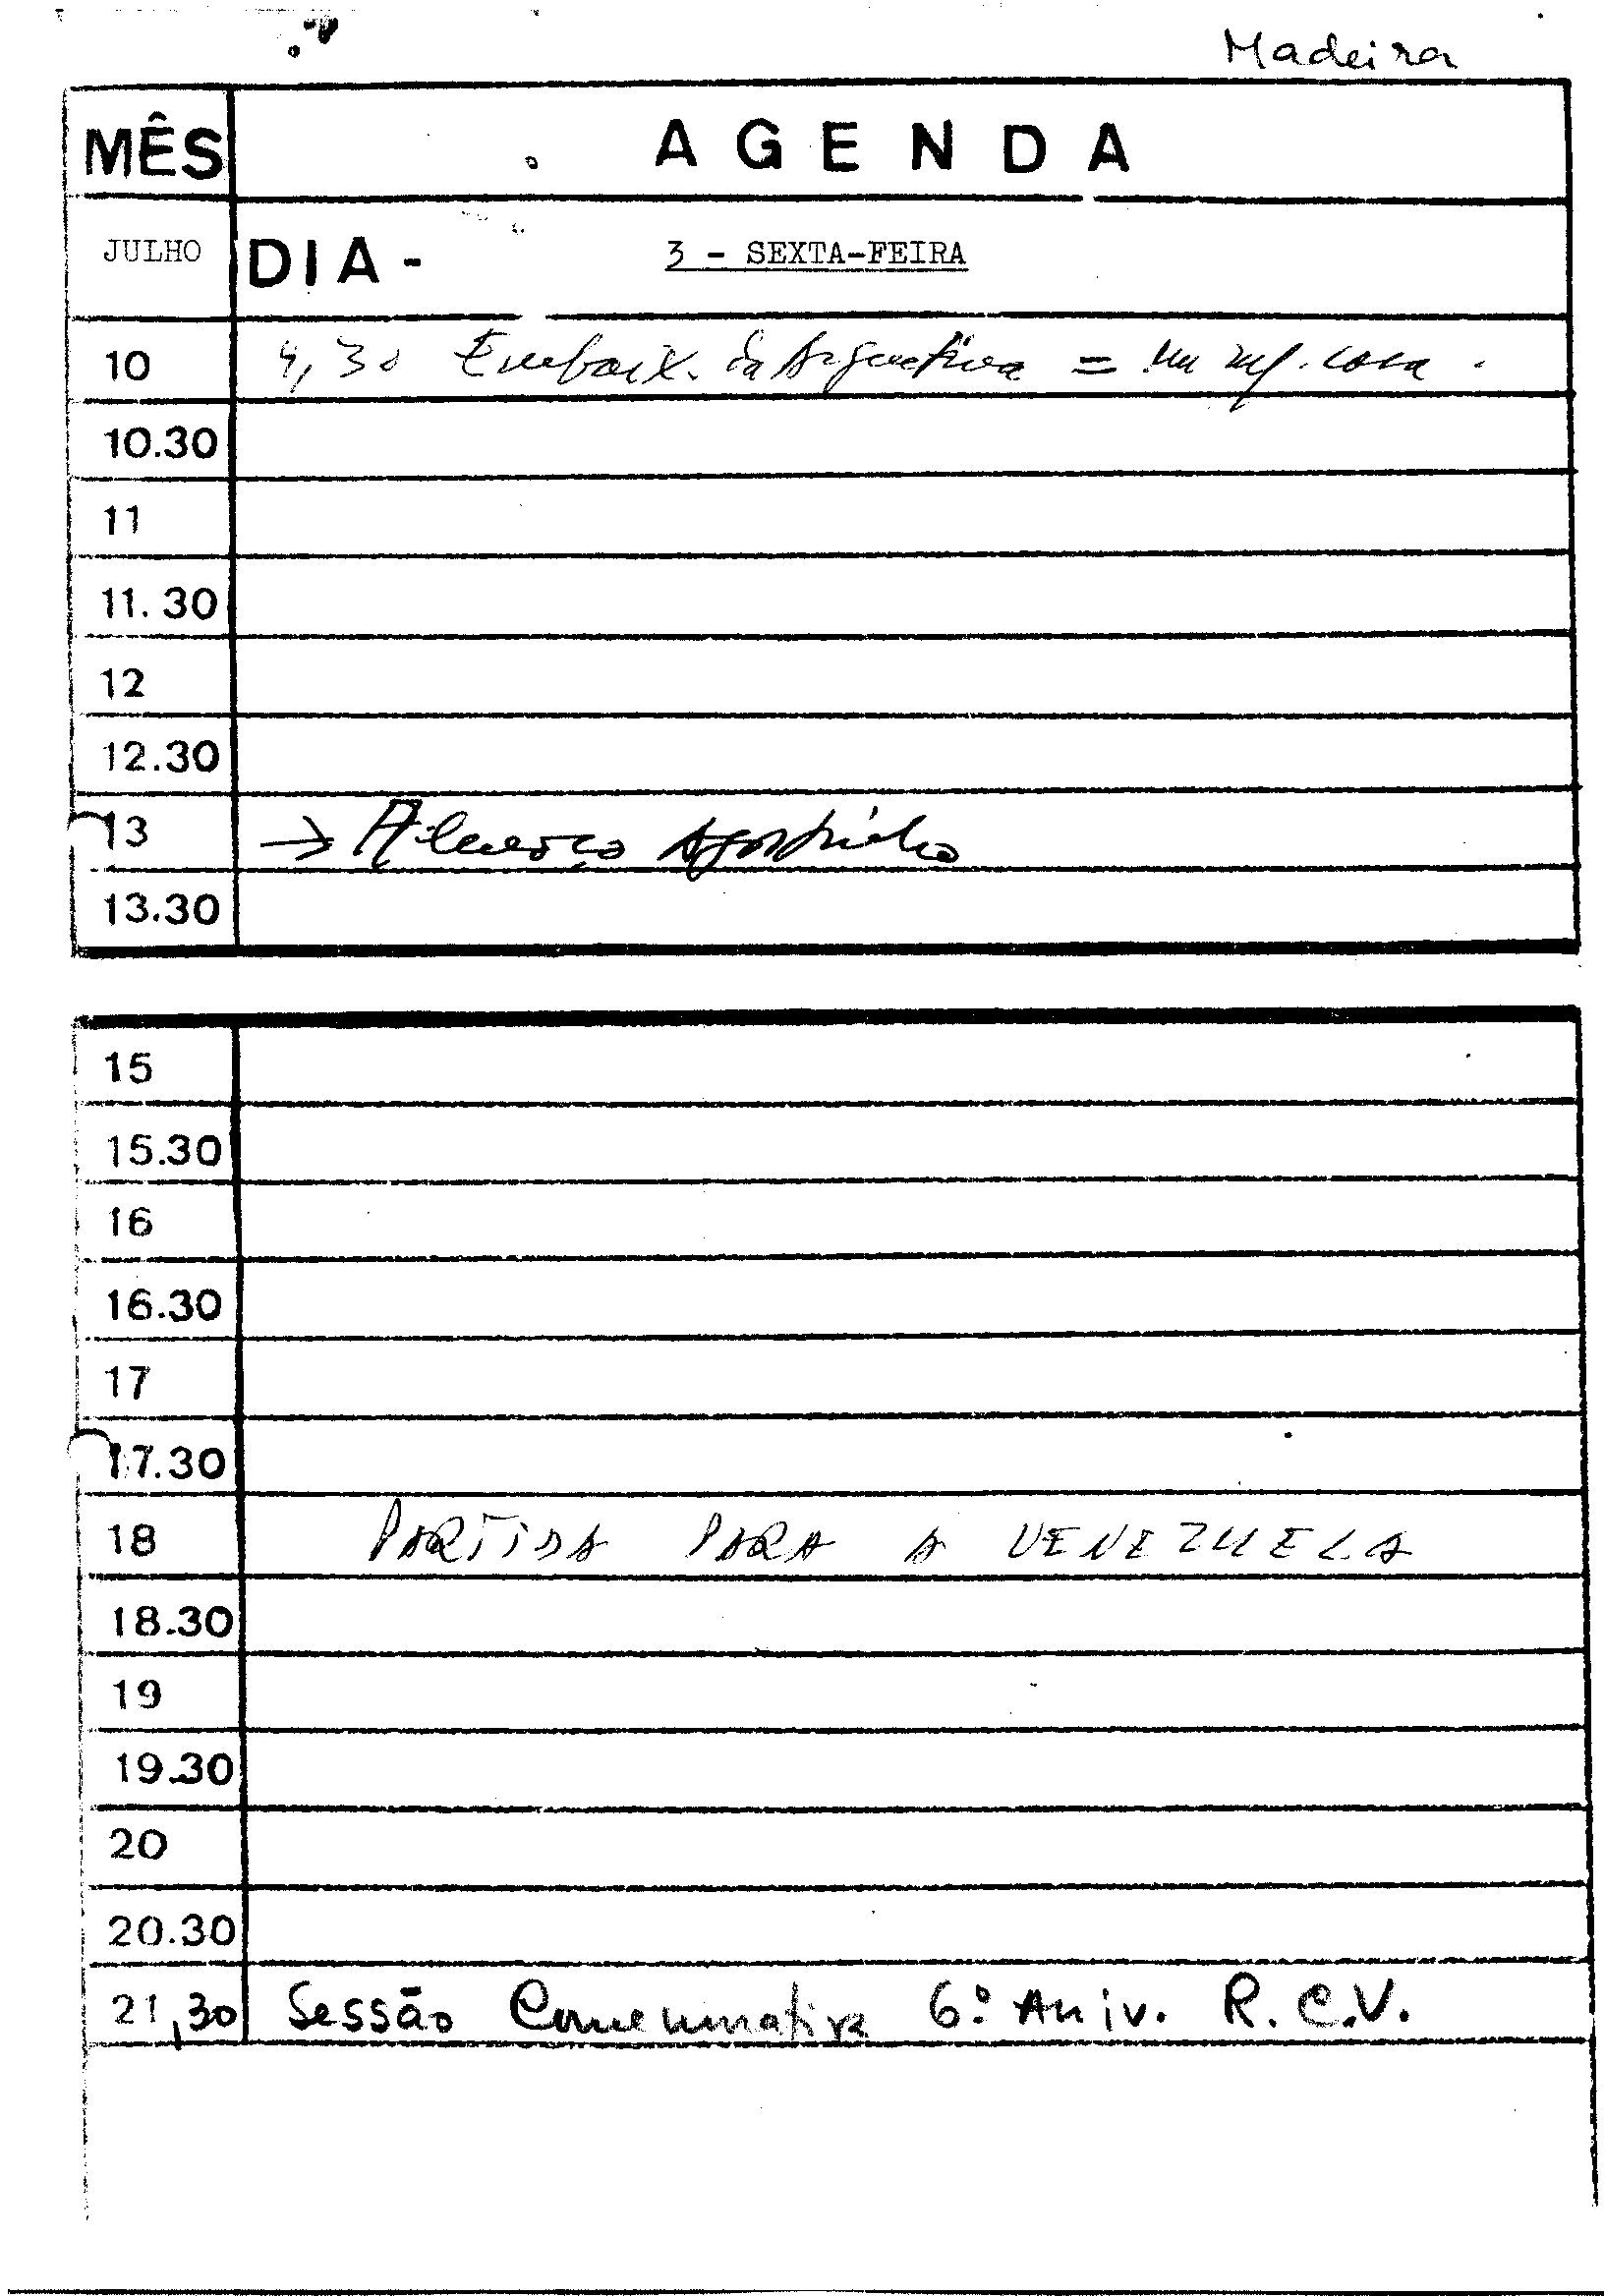 Madeira
MÊS AGENDA
JULHO DIA - 3 - SEXTA-FEIRA
10 9,30 Embaix. da Argentina = casa.
10.30
11
11.30
12
12.30
13 → Almoço Agostinho
13.30
15
15.30
16
16.30
17
17.30
18 PARTIDA PARA A VENEZUELA
18.30
19
19.30
20
20.30
21,30 Sessão Comemorativa 6º Aniv. R.C.V.